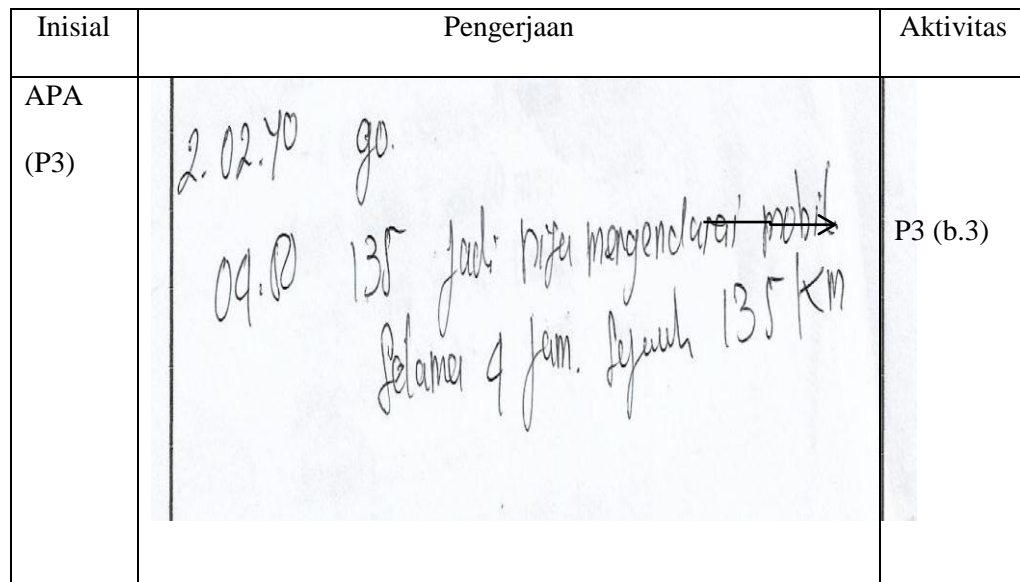 Inisial Pengerjaan Aktivitas
APA
(P3)
2. 02.40 90.
04.00 135 Jadi mengendarai mobil
Selama 4 jam. Sejauh 135 KM
P3 (b.3)